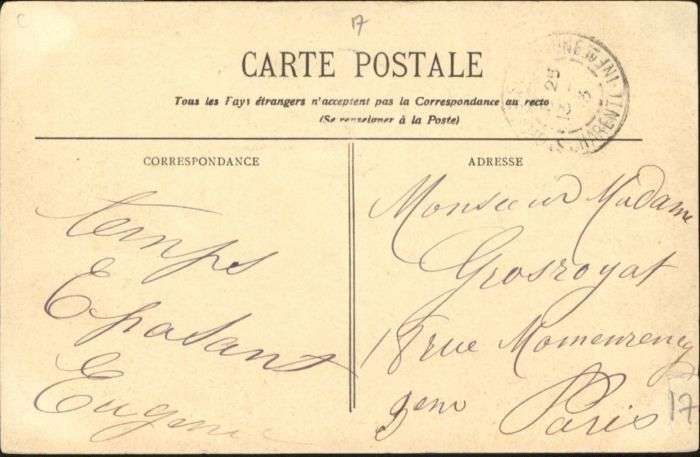 17
CARTE POSTALE
Tous les Pays étrangers n'acceptent pas la Correspondance au recto
(Se renseigner à la Poste)
CORRESPONDANCE
temps
Epatant
Eugenie
ADRESSE
Monsieur Madame
Grosroyat
18 rue Momenrency
9eme
Paris
17
25
CHARENTE INFRE